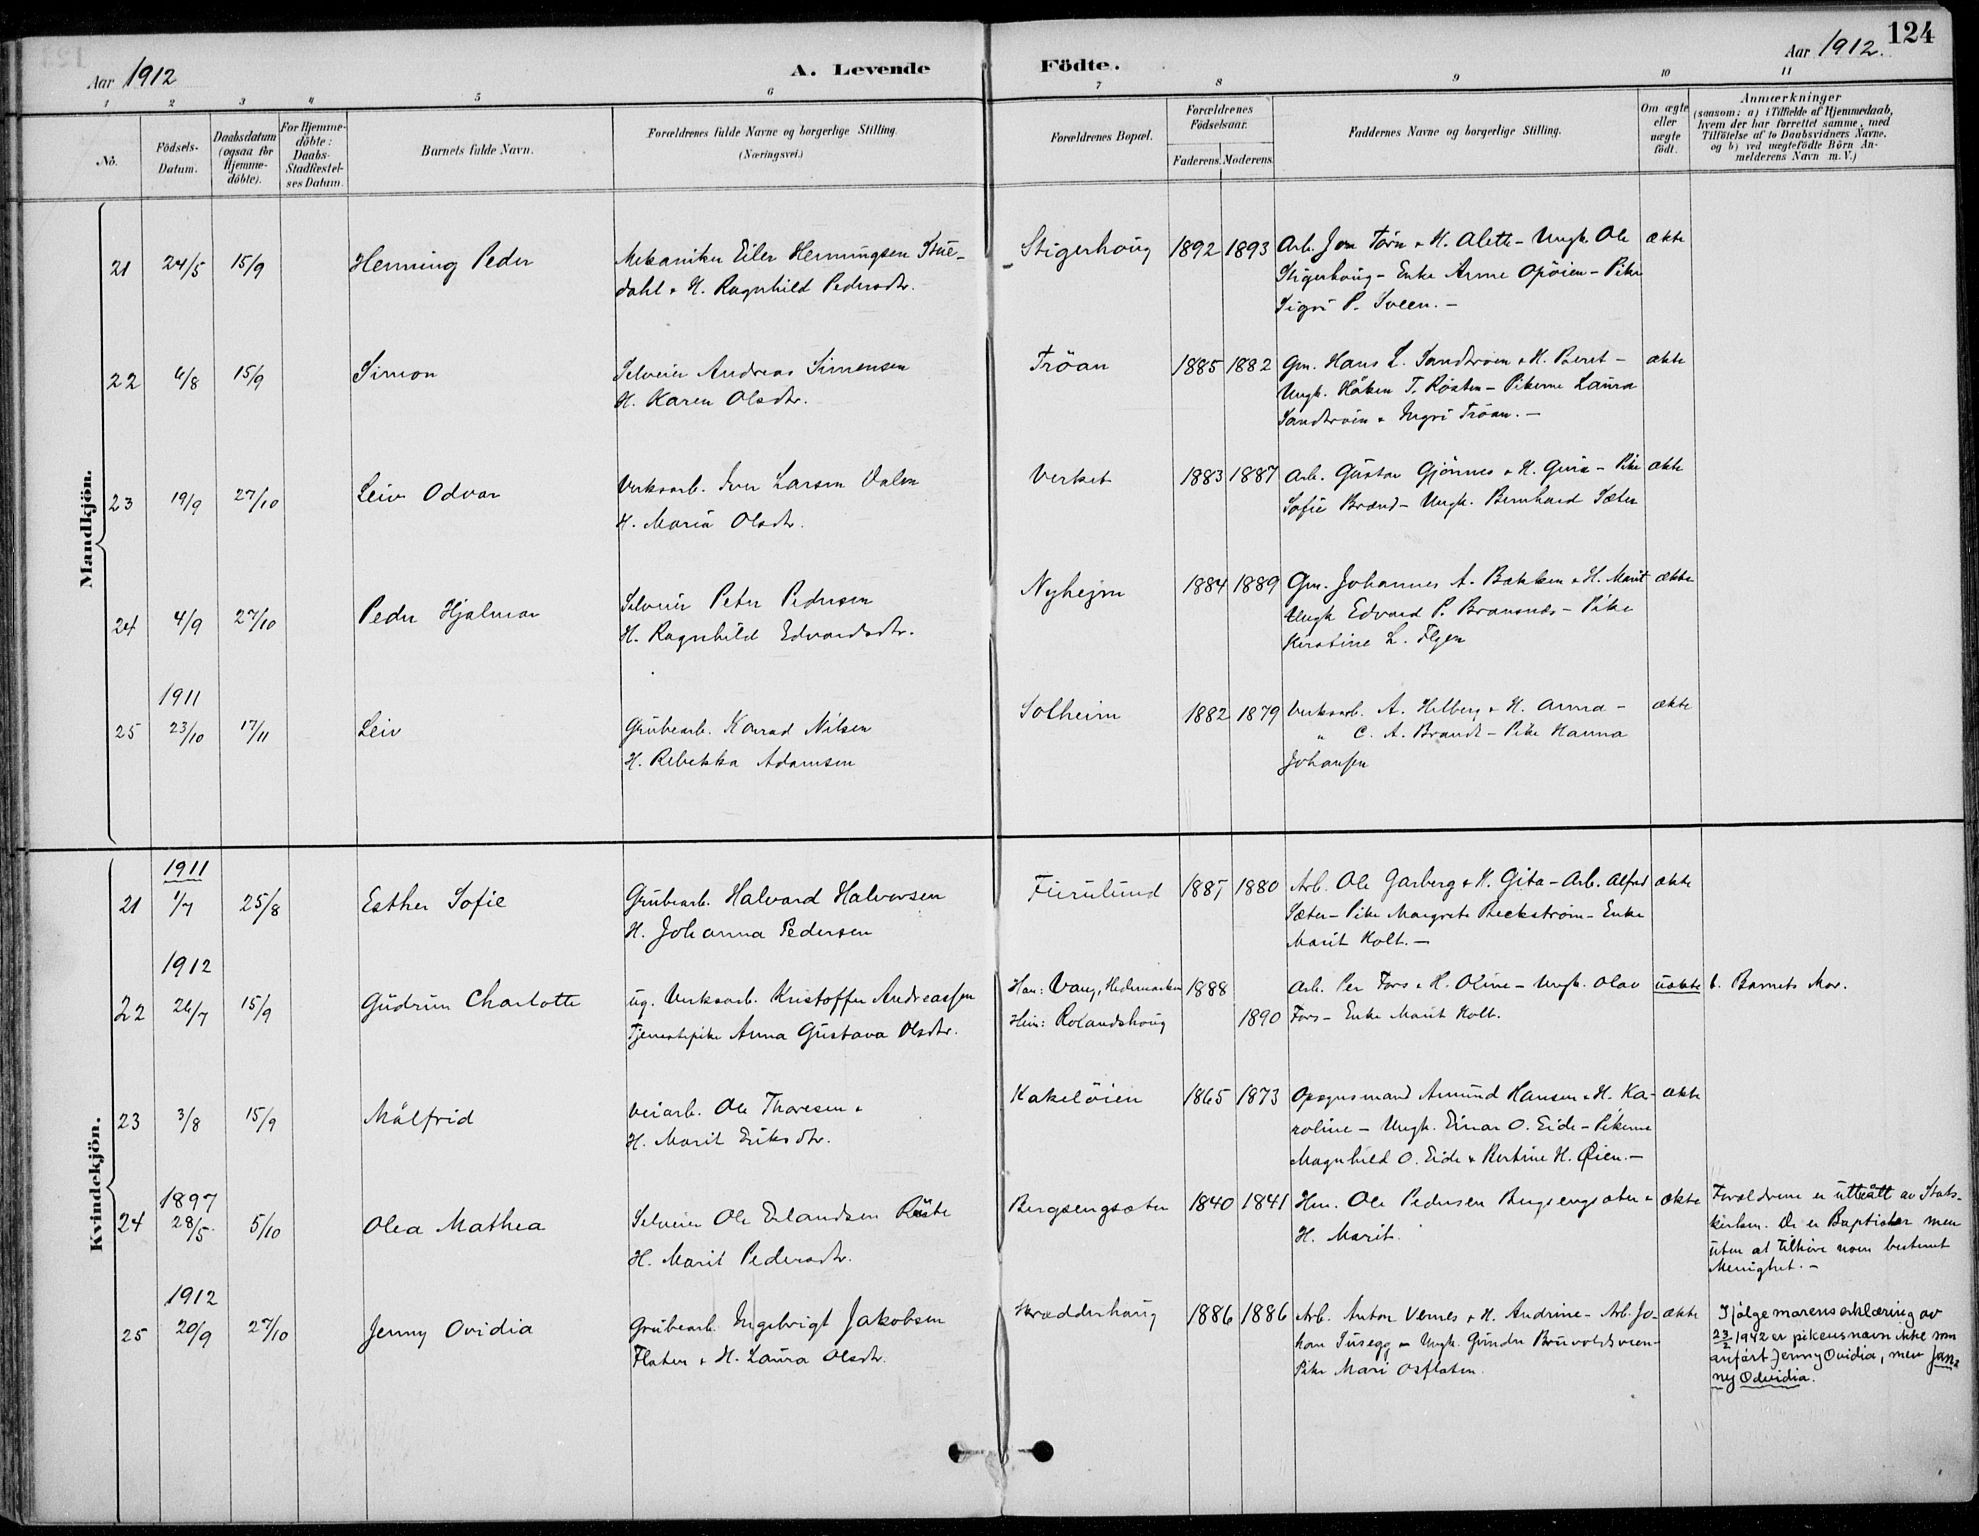 Aar 1912
A. Levende Födte.
Aar 1912.
124
1 2 3 4 5 6 7 8 9 10 11
No.
Födsels-
Datum.
Daabsdatum
(ogsaa for
Hjemme-
döbte).
For Hjemme-
döbte:
Daabs-
Stadfæstel-
ses Datum.
Barnets fulde Navn.
Forældrenes fulde Navne og borgerlige Stilling.
(Næringsvei.)
Forældrenes Bopæl.
Forældrenes
Födselsaar.
Faderens. Moderens.
Faddernes Navne og borgerlige Stilling.
Om ægte
eller
uægte
födt.
Anmærkninger
(saasom: a) i Tilfælde af Hjemmedaab,
hvem der har forrettet samme, med
Tilföielse af to Daabsvidners Navne.
og b) ved uægtefödte Börn An-
melderens Navn m. V.)
Mandkjön.
21 24/5 15/9 Henning Peder
Mekaniker Eiler Henningsen Stue-
dahl + H. Ragnhild Pedersdtr.
Stigerhoug 1892 1893
Arb. Jon Törn + H. Alette - Ungk. Ole
Stigerhoug - Enke Anne Opöien - Pike
Sigri P. Sveen. -
ekte
22 6/8 15/9 Simon
Selveier Andreas Simensen
H. Karen Olsdtr.
Tröan 1885 1882
Gm. Hans L. Sandtrøen + H. Beret -
Ungk. Håken T. Røsten - Pikerne Laura
Sandtrøen + Ingri Tröan. -
ekte
23 19/9 27/10 Leiv Odvar
Verksarb. Iver Larsen Dalen
H. Maria Olsdtr.
Verket 1883 1887
Arb. Gustav Gjönnes + H. Guria - Pike
Sofie Brand - Ungk. Bernhard Sæter
ekte
24 4/9 27/10 Peder Hjalmar
Selveier Peter Pedersen
H. Ragnhild Edvardsdtr.
Nyhejm 1884 1889
Gm. Johannes A. Bakken + H. Marit
Ungk Edvard P. Bransnes - Pike
Kirstine L. Flyen
ekte
1911
25 23/10 17/11 Leiv
Grubearb. Konrad Nilsen
H. Rebekka Adamsen
Solheim 1882 1879
Verksarb. A. Hilberg + H. Anna -
" C. A. Brandt - Pike Hanna
Johansen
ekte
Kvindekjön.
1911
21 1/7 25/8 Esther Sofie
Grubearb. Halvard Halvorsen
H. Johanna Pedersen
Furulund 1887 1880
Arb. Ole Garberg + H. Gita - Arb. Alfred
Sæter - Pike Margrete Beckstrøm - Enke
Marit Holt. -
ekte
1912
22 26/7 15/9 Gudrun Charlotte
ug. Verksarb. Kristoffer Andreassen
Tjenestepike Anna Gustava Olsdtr.
Han: Vang, Hedemarken 1888
Hun: Rolandshoug 1890
Arb. Per Fors + H. Oline - Ungk. Olav
Fors - Enke Marit Holt.
uekte
b. Barnets Mor.
23 3/8 15/9 Målfrid
Veiarb. Ole Thoresen +
H. Marit Eriksdtr.
Kakelöien 1865 1873
Opsynsmand Amund Hansen + H. Ka-
roline - Ungk. Einar O. Eide - Pikerne
Magnhild O. Eide + Kertine H. Øien. -
ekte
1897
24 28/5 5/10 Olea Mathea
Selveier Ole Erlandsen Røste
H. Marit Pedersdtr.
Bergsengsæter 1840 1841
Hm. Ole Pedersen Bergsengsæter +
H. Marit.
ekte
Forældrene er utteått av Stats-
kirken. De er Baptister men
uten at tilhöre noen bestemt
Menighet. -
1912
25 20/9 27/10 Jenny Ovidia
Grubearb. Ingebrigt Jakobsen
Flaten + H. Laura Olsdtr.
Skredderhaug 1886 1886
Arb. Anton Vernes + H. Andrine - Arb. Jo-
han Tusegg - Ungk. Gunder Bruvoldsveen -
Pike Mari Osflaten.
ekte
Ifølge morens erklæring av
23/2 1942 er pikens navn ikke som
anført Jenny Ovidia, men Jen-
ny Odvidia.